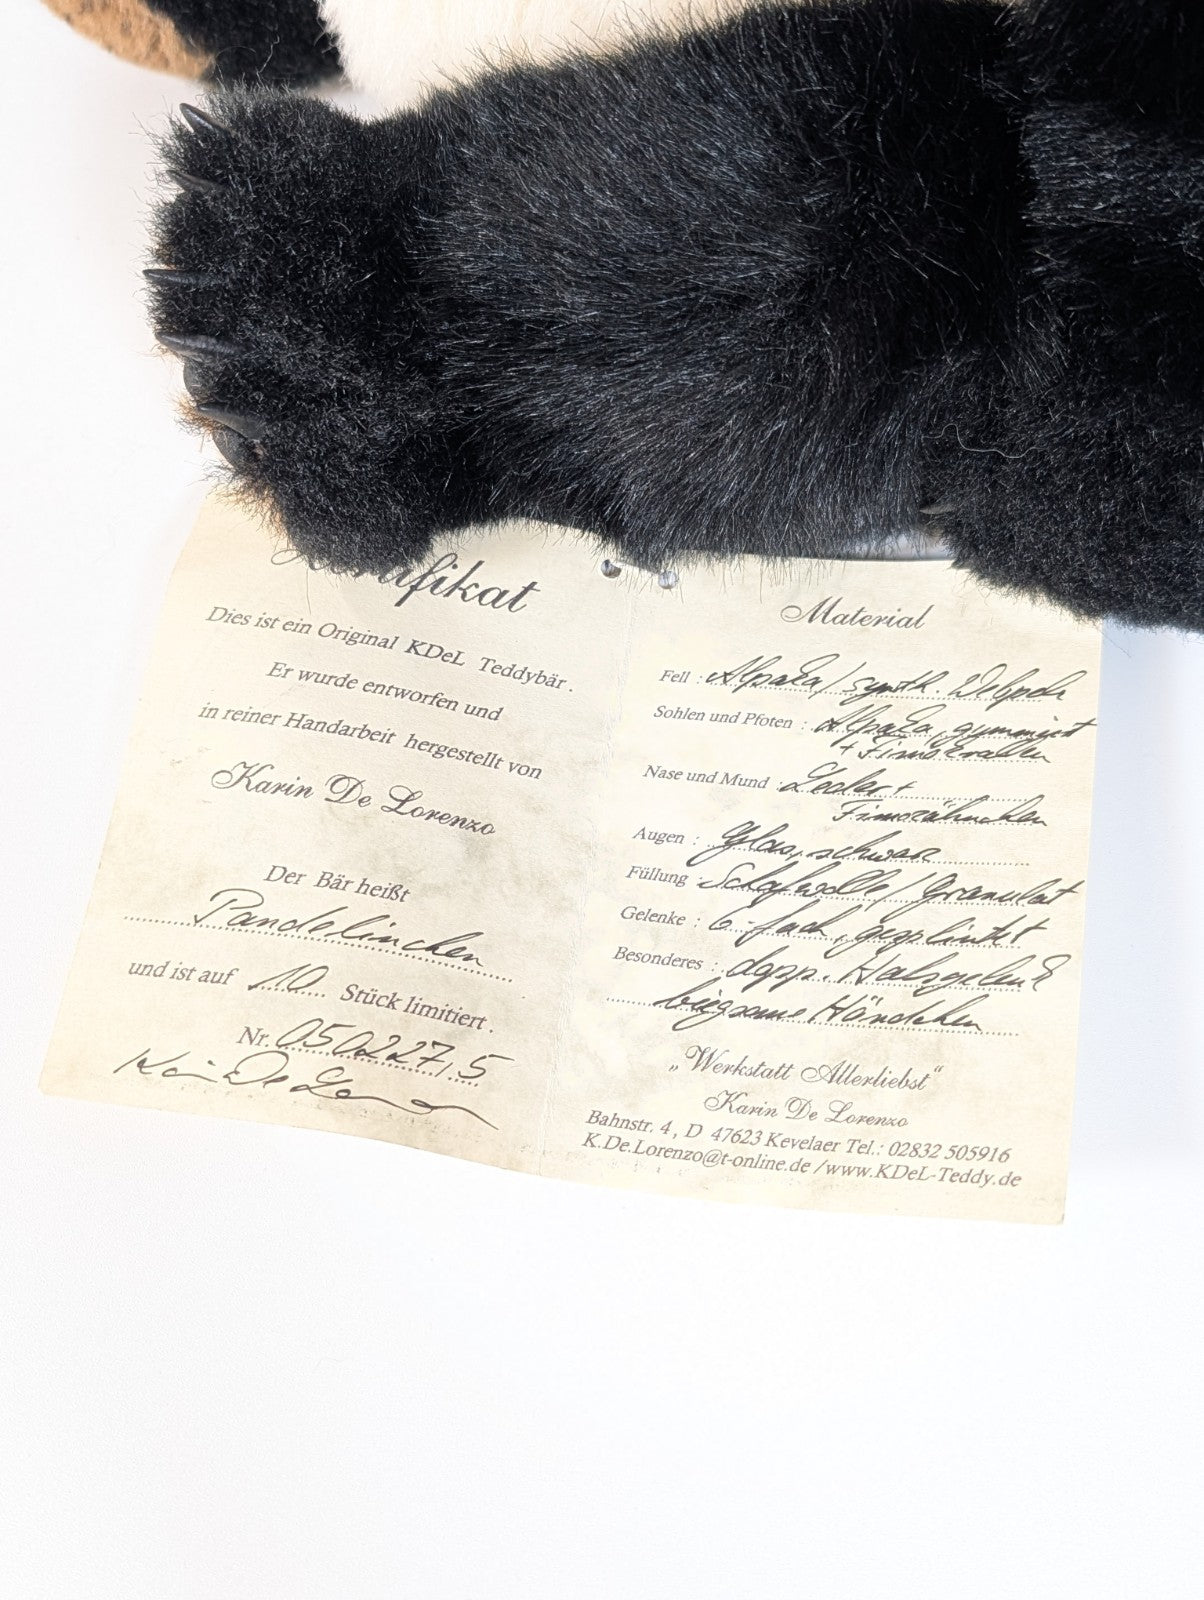 Zertifikat
Dies ist ein Original KDeL Teddybär.
Er wurde entworfen und
in reiner Handarbeit hergestellt von
Karin De Lorenzo
Der Bär heißt
Pandelinchen
und ist auf 10 Stück limitiert.
Nr. 050227,5
Karin De Lorenzo
Material
Fell : Alpaka / synth. Webpelz
Sohlen und Pfoten : Alpaka, gummiert
+ Fimokrallen
Nase und Mund : Leder +
Fimozähnchen
Augen : Glas, schwarz
Füllung : Schafwolle / Granulat
Gelenke : 6-fach, gesplintet
Besonderes : dopp. Halsgelenk
biegsame Händchen
„Werkstatt Allerliebst“
Karin De Lorenzo
Bahnstr. 4 , D 47623 Kevelaer Tel.: 02832 505916
K.De.Lorenzo@t-online.de /www.KDeL-Teddy.de